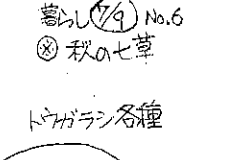 暮らし 7/9 No.6
※ 秋の七草
トウガラシ各種